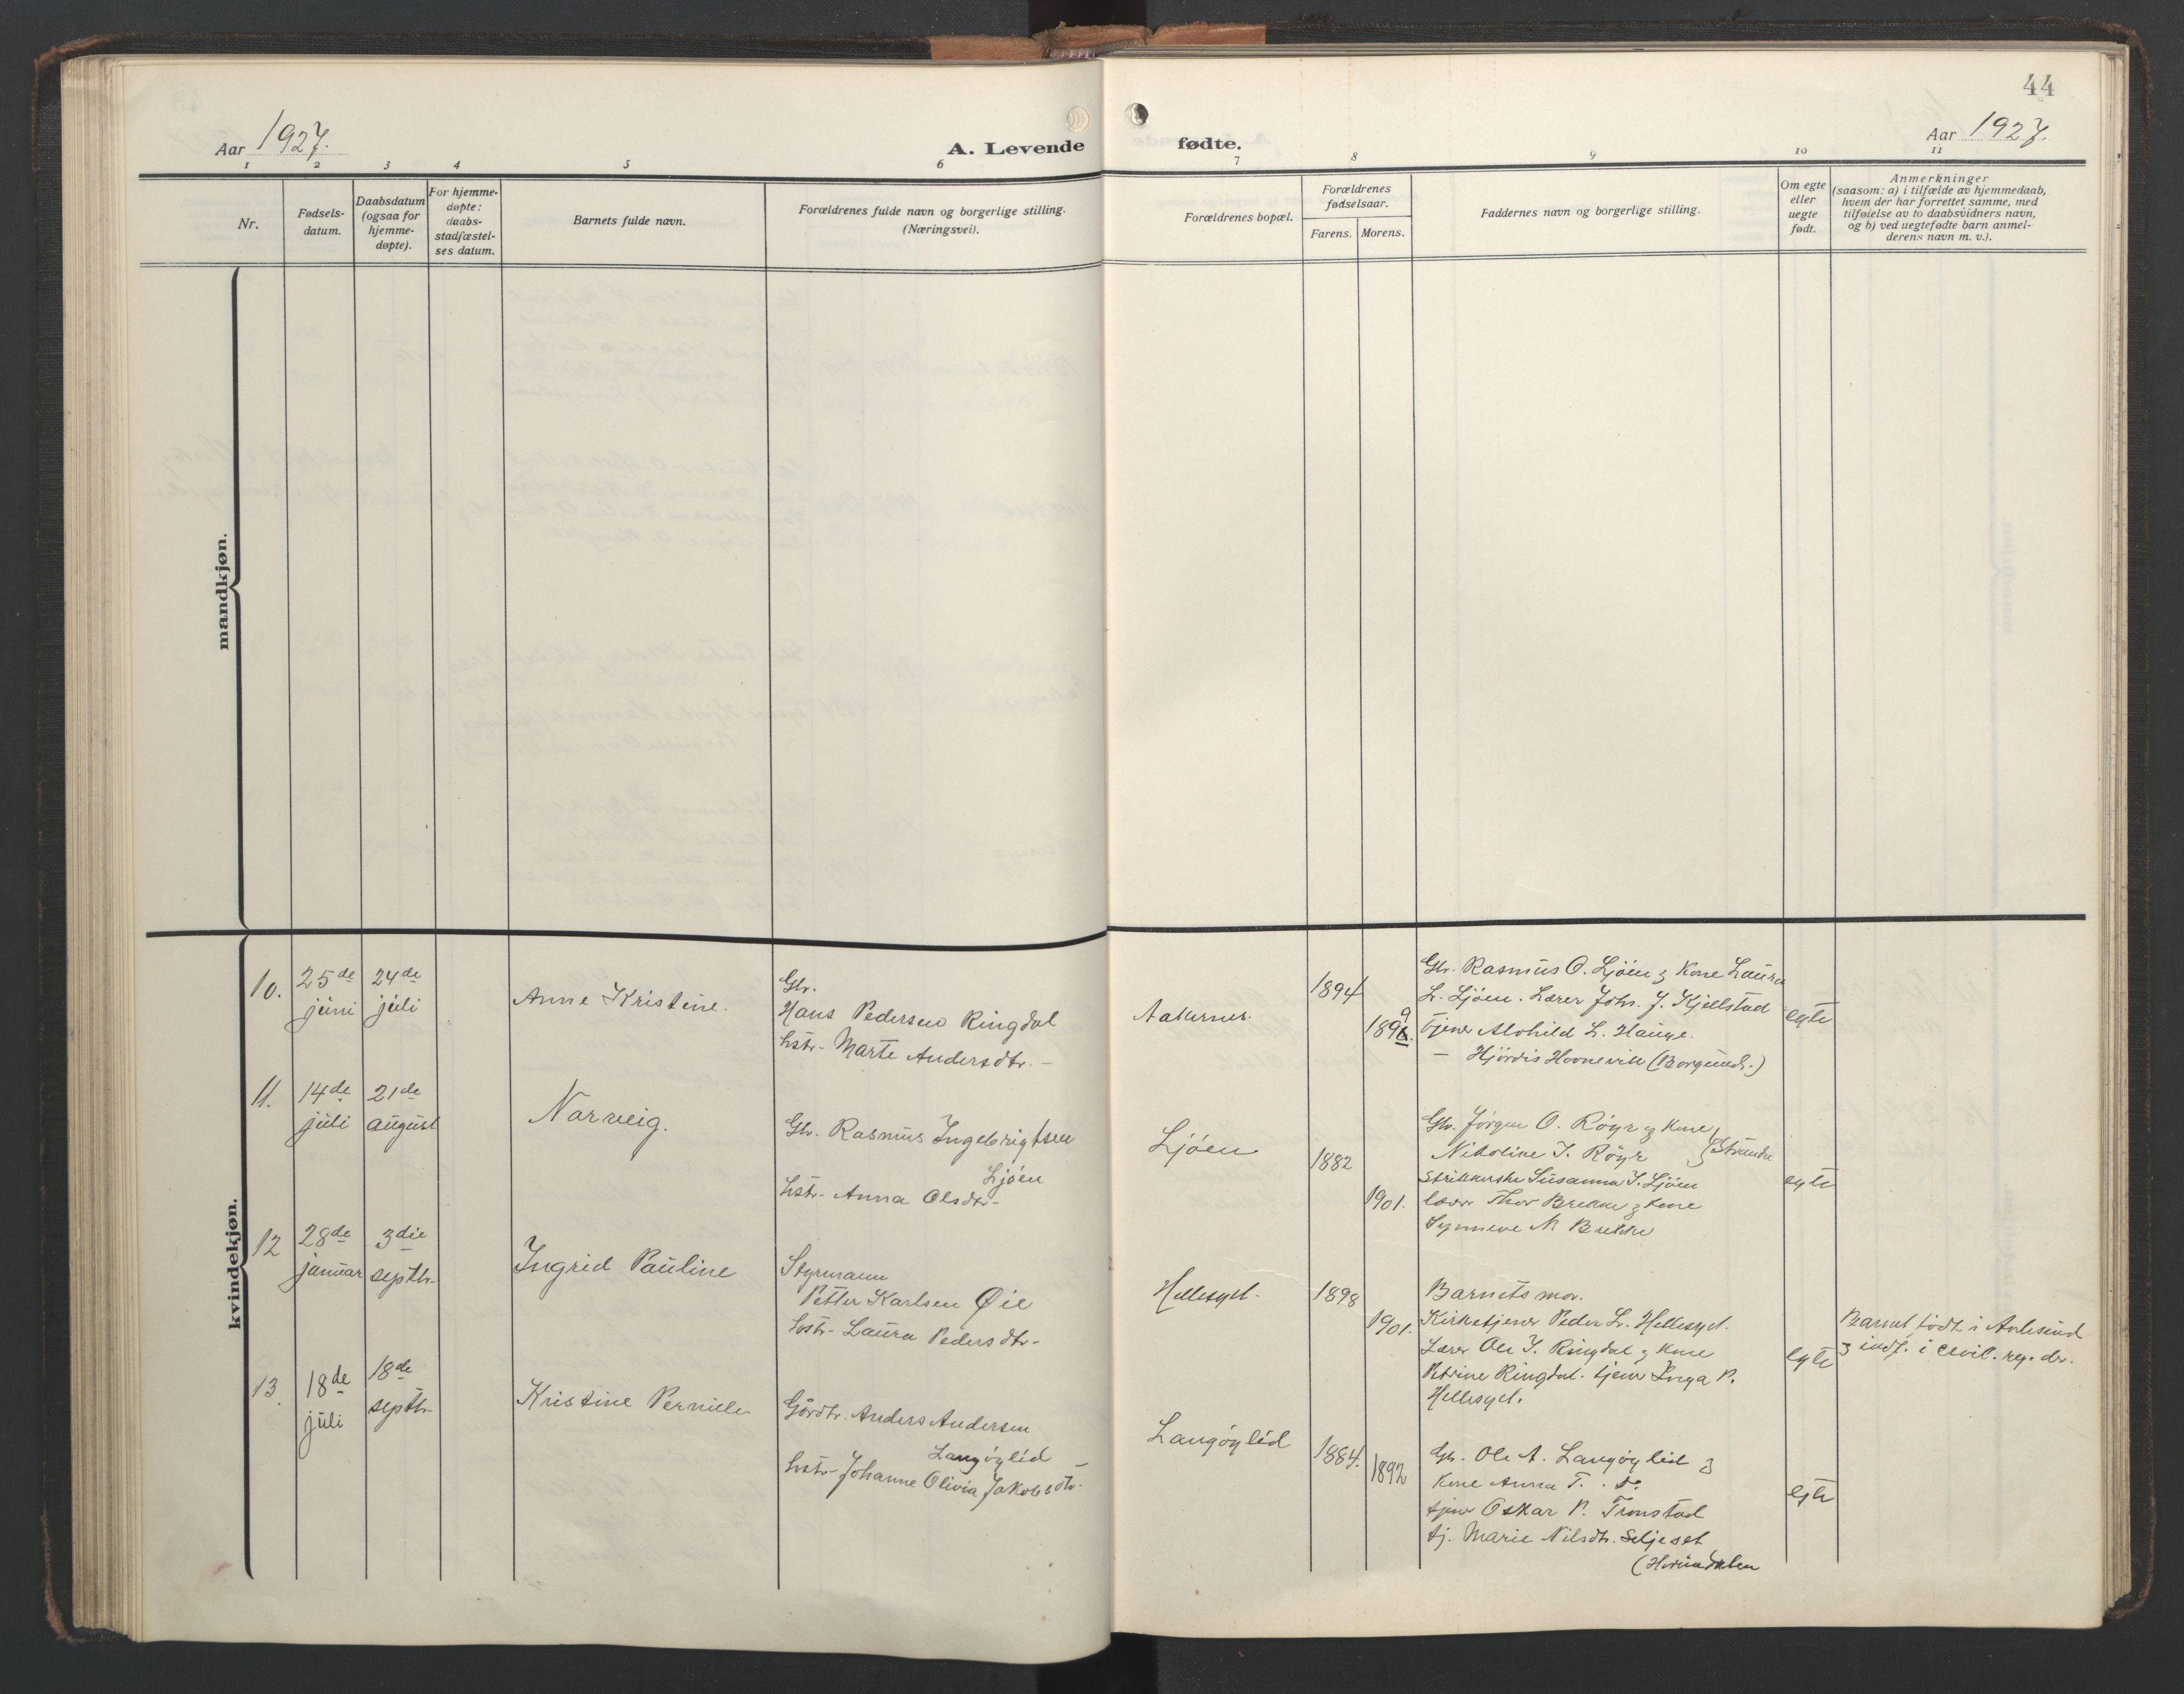 44
Aar 1927.
A. Levende fødte.
Aar 1927.
1 2 3 4 5 6 7 8 9 10 11
Nr.
Fødsels-
datum.
Daabsdatum
(ogsaa for
hjemme-
døpte).
For hjemme-
døpte:
daabs-
stadfæstel-
ses datum.
Barnets fulde navn.
Forældrenes fulde navn og borgerlige stilling.
(Næringsvei).
Forældrenes bopæl.
Forældrenes
fødselsaar.
Farens. Morens.
Faddernes navn og borgerlige stilling.
Om egte
eller
uegte
født.
Anmerkninger
(saasom: a) i tilfælde av hjemmedaab,
hvem der har forrettet samme, med
tilføielse av to daabsvidners navn,
og b) ved uegtefødte barn anmel-
derens navn m. v.).
mandkjøn.
kvindekjøn.
10.
25de
juni
24de
juli
Anne Kristine.
Gbr.
Hans Pedersen Ringdal
hstr. Marte Andersdtr. -
Aakernes.
1894
189
Gbr. Rasmus O. Ljöen & Kone Laura
L. Ljöen. Lærer Joh. J. Kjellstad
Tjener Alvhild L. Hauge.
- Hjördis Hovnevik (Borgund.)
egte
11.
14de
juli
21de
august
Narveig.
Gbr. Rasmus Ingebrigtsen
Ljöen
hstr. Anna Olsdtr.
Ljöen
1882
1901.
Gbr. Jörgen O. Röyr & kone
Nikoline I. Röyr
Susanna I. Ljöen
lærer Thor Brekke & kone
Synneve M Brekke
egte
12
28de
januar
3die
septbr.
Ingrid Pauline
Styrmann
Petter Karlsen Øie
hstr. Laura Pedersdtr.
Hellesylt.
1898
1901.
Barnets mor.
Kirketjener Peder L. Hellesylt.
Lærer Ole I. Ringdal & kone
Petrine Ringdal. tjener Inga P.
Hellesylt.
egte
Barnet födt i Aalesund
& indf. i civil. reg. der.
13.
18de
juli
18de
septbr.
Kristine Pernille
Gårdbr. Anders Andersen
Langöylid
hstr. Johanne Olivia Jakobsdtr.
Langöylid
1884.
1892
Gbr. Ole A. Langöylid &
Kone Anna T.
tjener Oskar P. Tronstad
tj. Marie Nilsdtr. Seljeset
egte